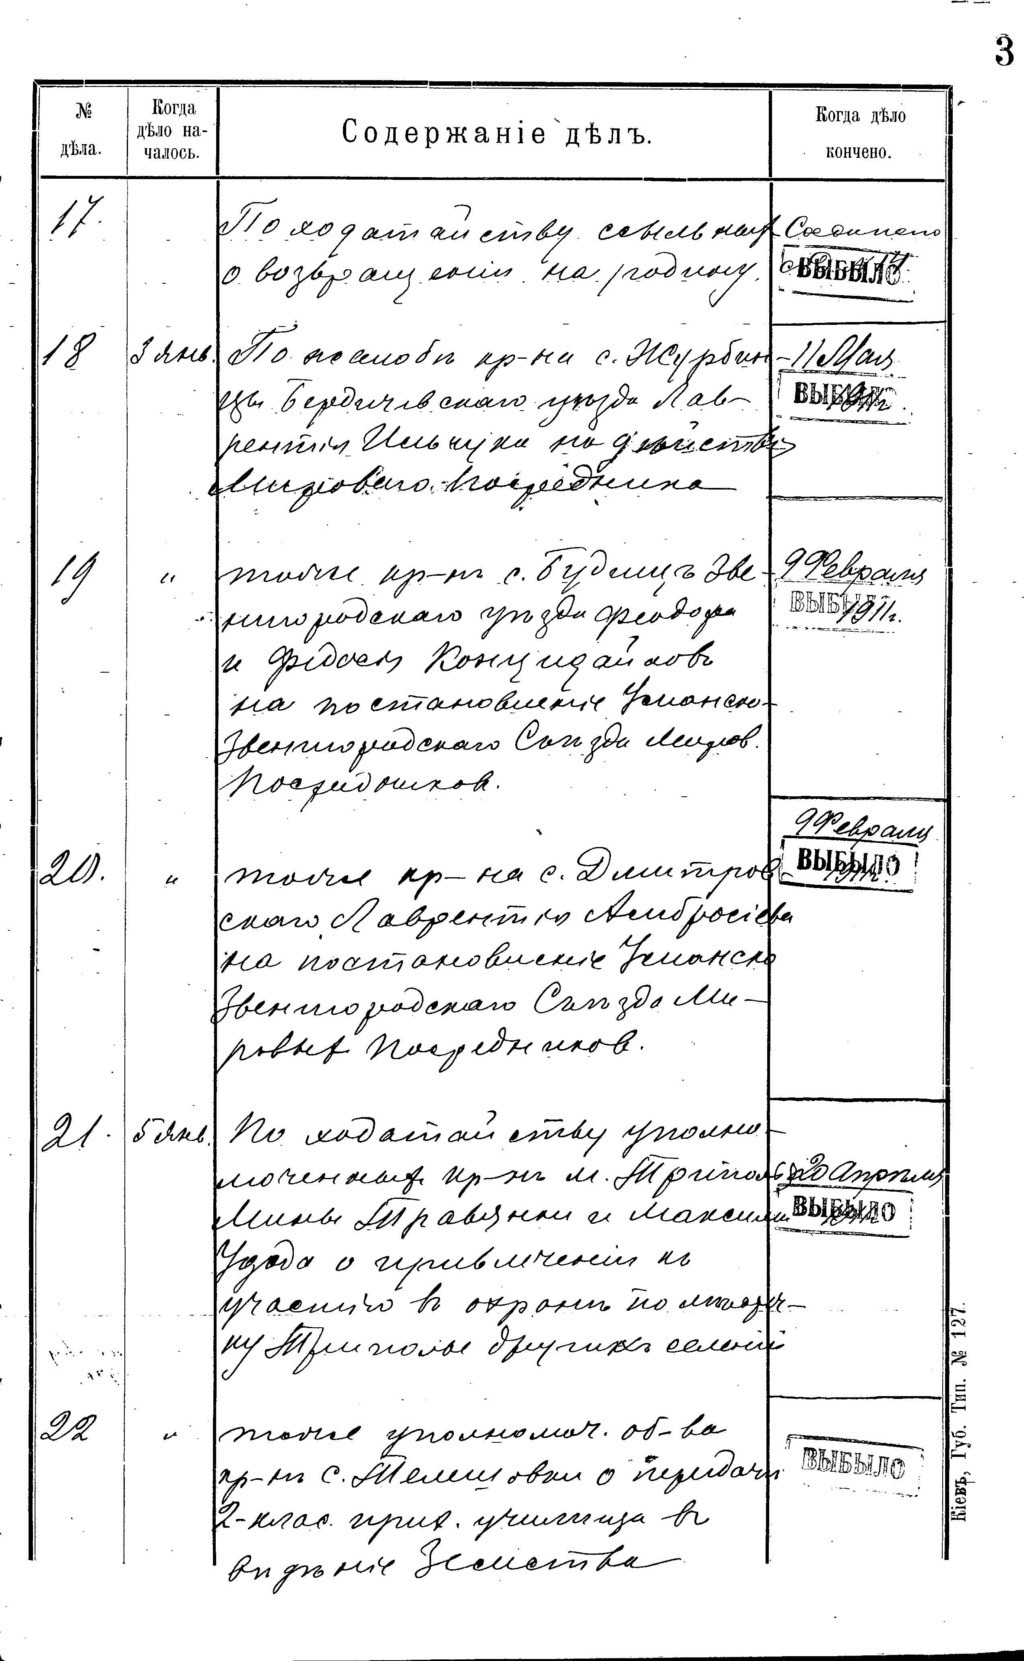 3
№ дѣла.
Когда дѣло началось.
Содержаніе дѣлъ.
Когда дѣло кончено.
17.
По ходатайству ссыльных
о возвращеніи на родину.
Соединено
ВЫБЫЛО
18
3 Янв.
По жалобѣ кр-на с. Журбин-
цы Бердичевскаго уѣзда Лав-
рентія Ильчука на дѣйствія
Мироваго Посредника
11 Мая
1911г.
ВЫБЫЛО
19
"
тоже кр-нъ с. Будищъ Зве-
нигородскаго уѣзда Феодора
и Федосія
на постановленіе Уманско-
Звенигородскаго Съѣзда Миров.
Посредников.
9 Февраля
1911г.
ВЫБЫЛО
20.
"
тоже кр-на с. Дмитров
скаго Лаврентія Амбросіева
на постановленіе Уманско
Звенигородскаго Съѣзда Ми-
ровых Посредников.
9 Февраля
1911г.
ВЫБЫЛО
21.
5 Янв.
По ходатайству уполно-
моченных кр-нъ м. Триполья
Мины Травянки и Максима
Удода о привлеченіи къ
участію въ охранѣ по
ку Триполье другихъ селеній
20 Апрѣля
1911г.
ВЫБЫЛО
22
"
тоже уполномоч. об-ва
кр-нъ с. Телешовки о передачи
2-клас. прих. училища въ
вѣдѣніе Земства
ВЫБЫЛО
Кіевъ, Губ. Тип. № 127.